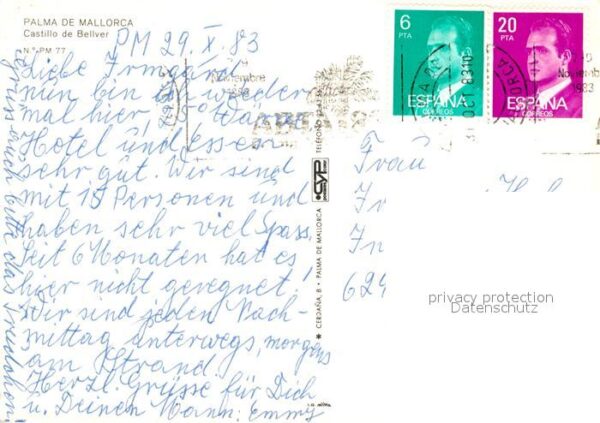 PALMA DE MALLORCA
Castillo de Bellver
N.° PM 77
PM 29. X. 83
Liebe Irmgard
nun bin ich wieder
mal hier,
Hotel und Essen
sehr gut. Wir sind
mit 15 Personen und
haben sehr viel Spass.
Seit 6 Monaten hat es
hier nicht geregnet!
Wir sind jeden Nach-
mittag unterwegs, morgens
am Strand.
Herzl. Grüsse für Dich
u. Deinen Mann. Emmy
bitte das
CYP
CERDAÑA, 8 • PALMA DE MALLORCA
TELEFONO
6
PTA
ESPAÑA
CORREOS
20
PTA
ESPAÑA
CORREOS
OCT 83
Noviembre
1983
Frau
629
privacy protection
Datenschutz